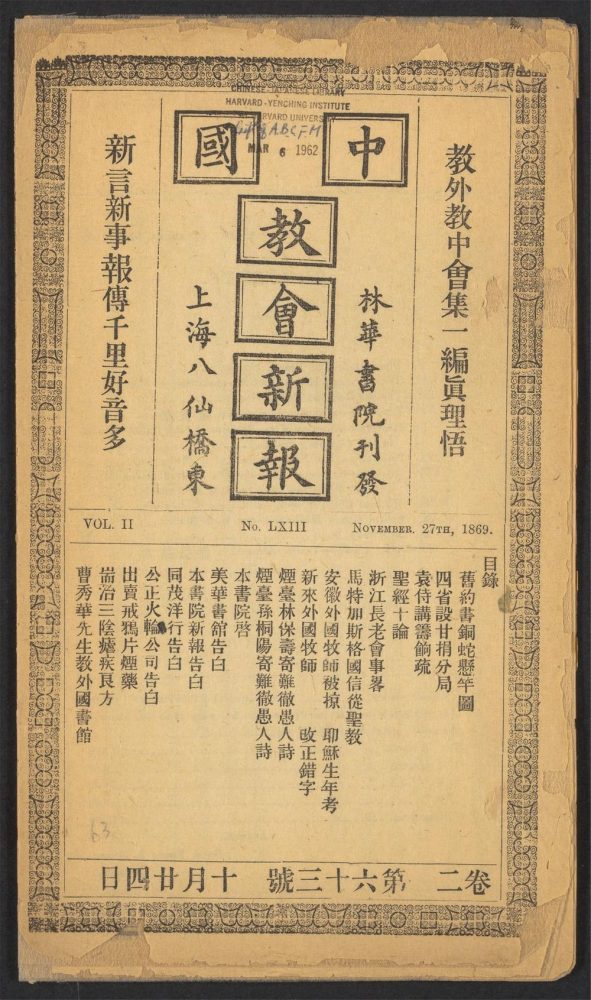 CHINESE-JAPANESE LIBRARY
HARVARD-YENCHING INSTITUTE
HARVARD UNIVERSITY
MAR 6 1962
中國
教會新報
教外教中會集一編眞理悟
林華書院刊發
上海八仙橋東
新言新事報傳千里好音多
VOL. II No. LXIII NOVEMBER. 27TH, 1869.
目錄
舊約書銅蛇懸竿圖
四省設甘捐分局
袁侍講籌餉疏
聖經十論
浙江長老會事畧
馬特加斯格國信從聖教
安徽外國牧師被掠 耶穌生年考
新來外國牧師 改正錯字
煙臺林保壽寄難徹愚人詩
煙臺孫桐陽寄難徹愚人詩
本書院啓
美華書館告白
本書院新報告白
同茂洋行告白
公正火輪公司告白
出賣戒鴉片煙藥
耑治三陰瘧疾良方
曹秀華先生教外國書館
卷二 第六十三號 十月廿四日
63